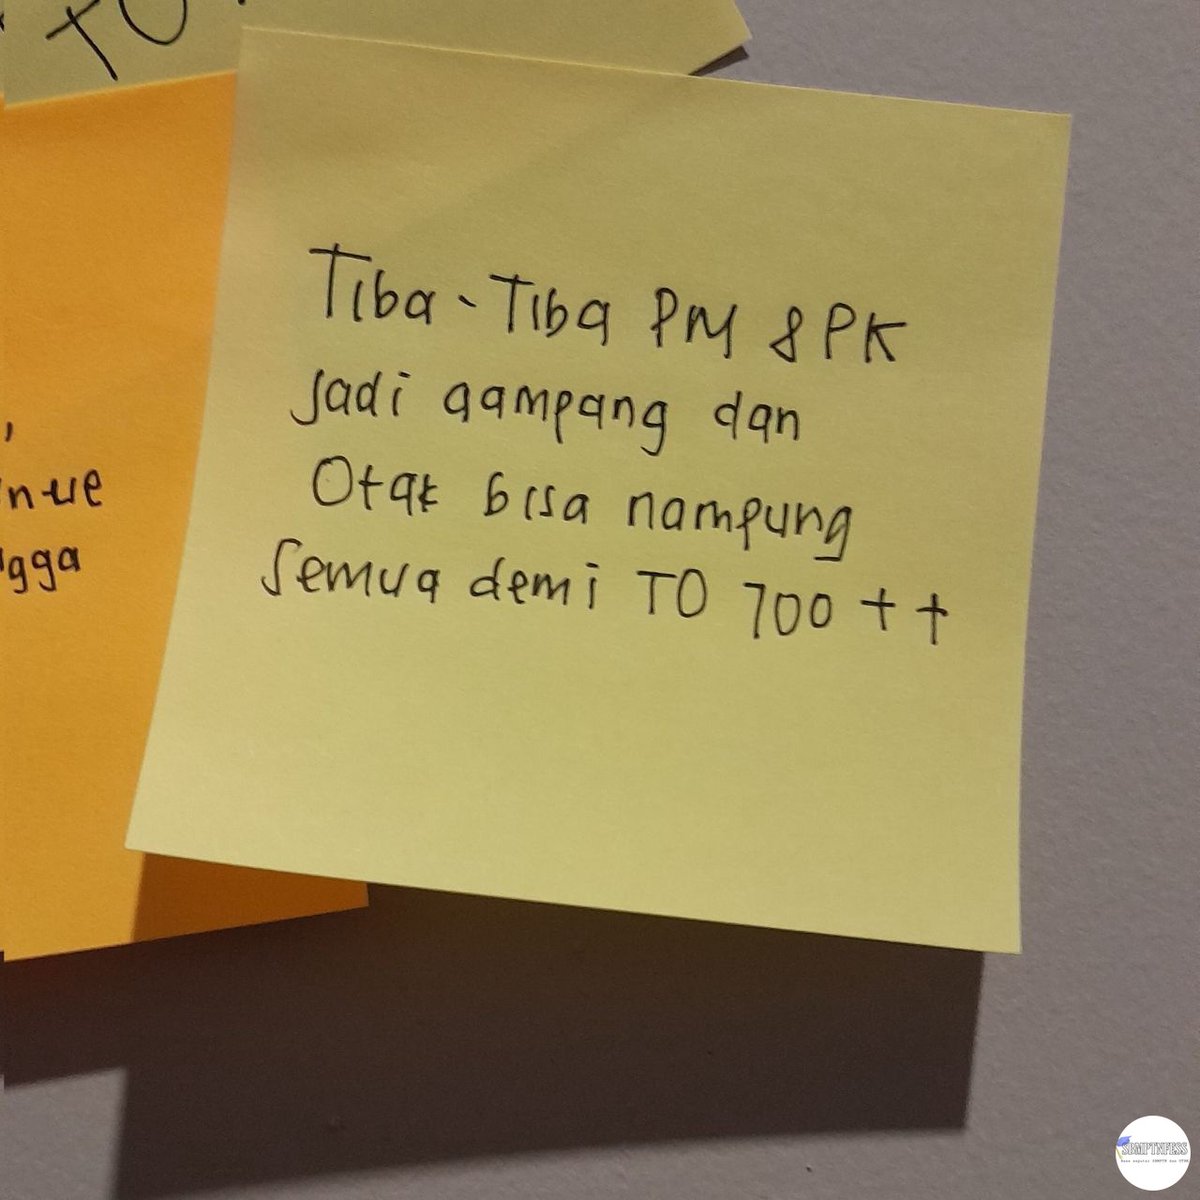 TO
Tiba-Tiba PM & PK
Jadi gampang dan
Otak bisa nampung
Semua demi TO 700 ++
,
nue
gga
SBMPTNFESS